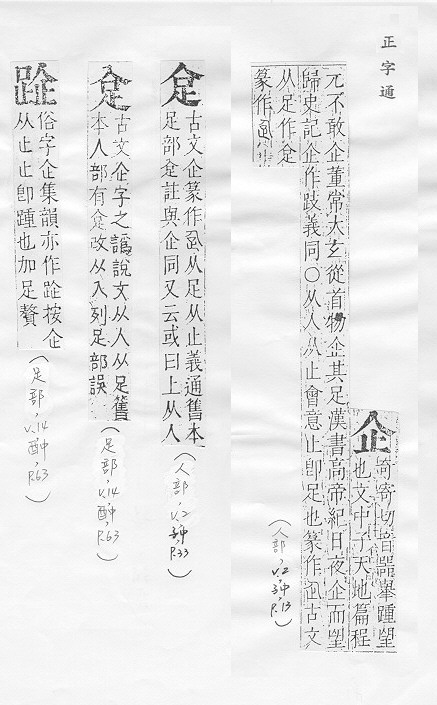 正字通
企
奇寄切音器舉踵望
也文中子天地篇程
元不敢企董常大玄從首物企其足漢書高帝紀日夜企而望
歸史記企作跂義同〇从人从止會意止卽足也篆作𠈮古文
从足作𠈮
篆作
(人部,v.2
P.13)
古文企篆作从足从止義通舊本
足部註與企同又云或曰上从人
(人部,v.2
P.33)
古文企字之譌說文从人从足舊
本人部有改从入列足部誤
(足部,v.14
酉中,
P.63)
跮
俗字企集韻亦作按企
从止止卽踵也加足贅
(足部,v.14
酉中,
P.63)